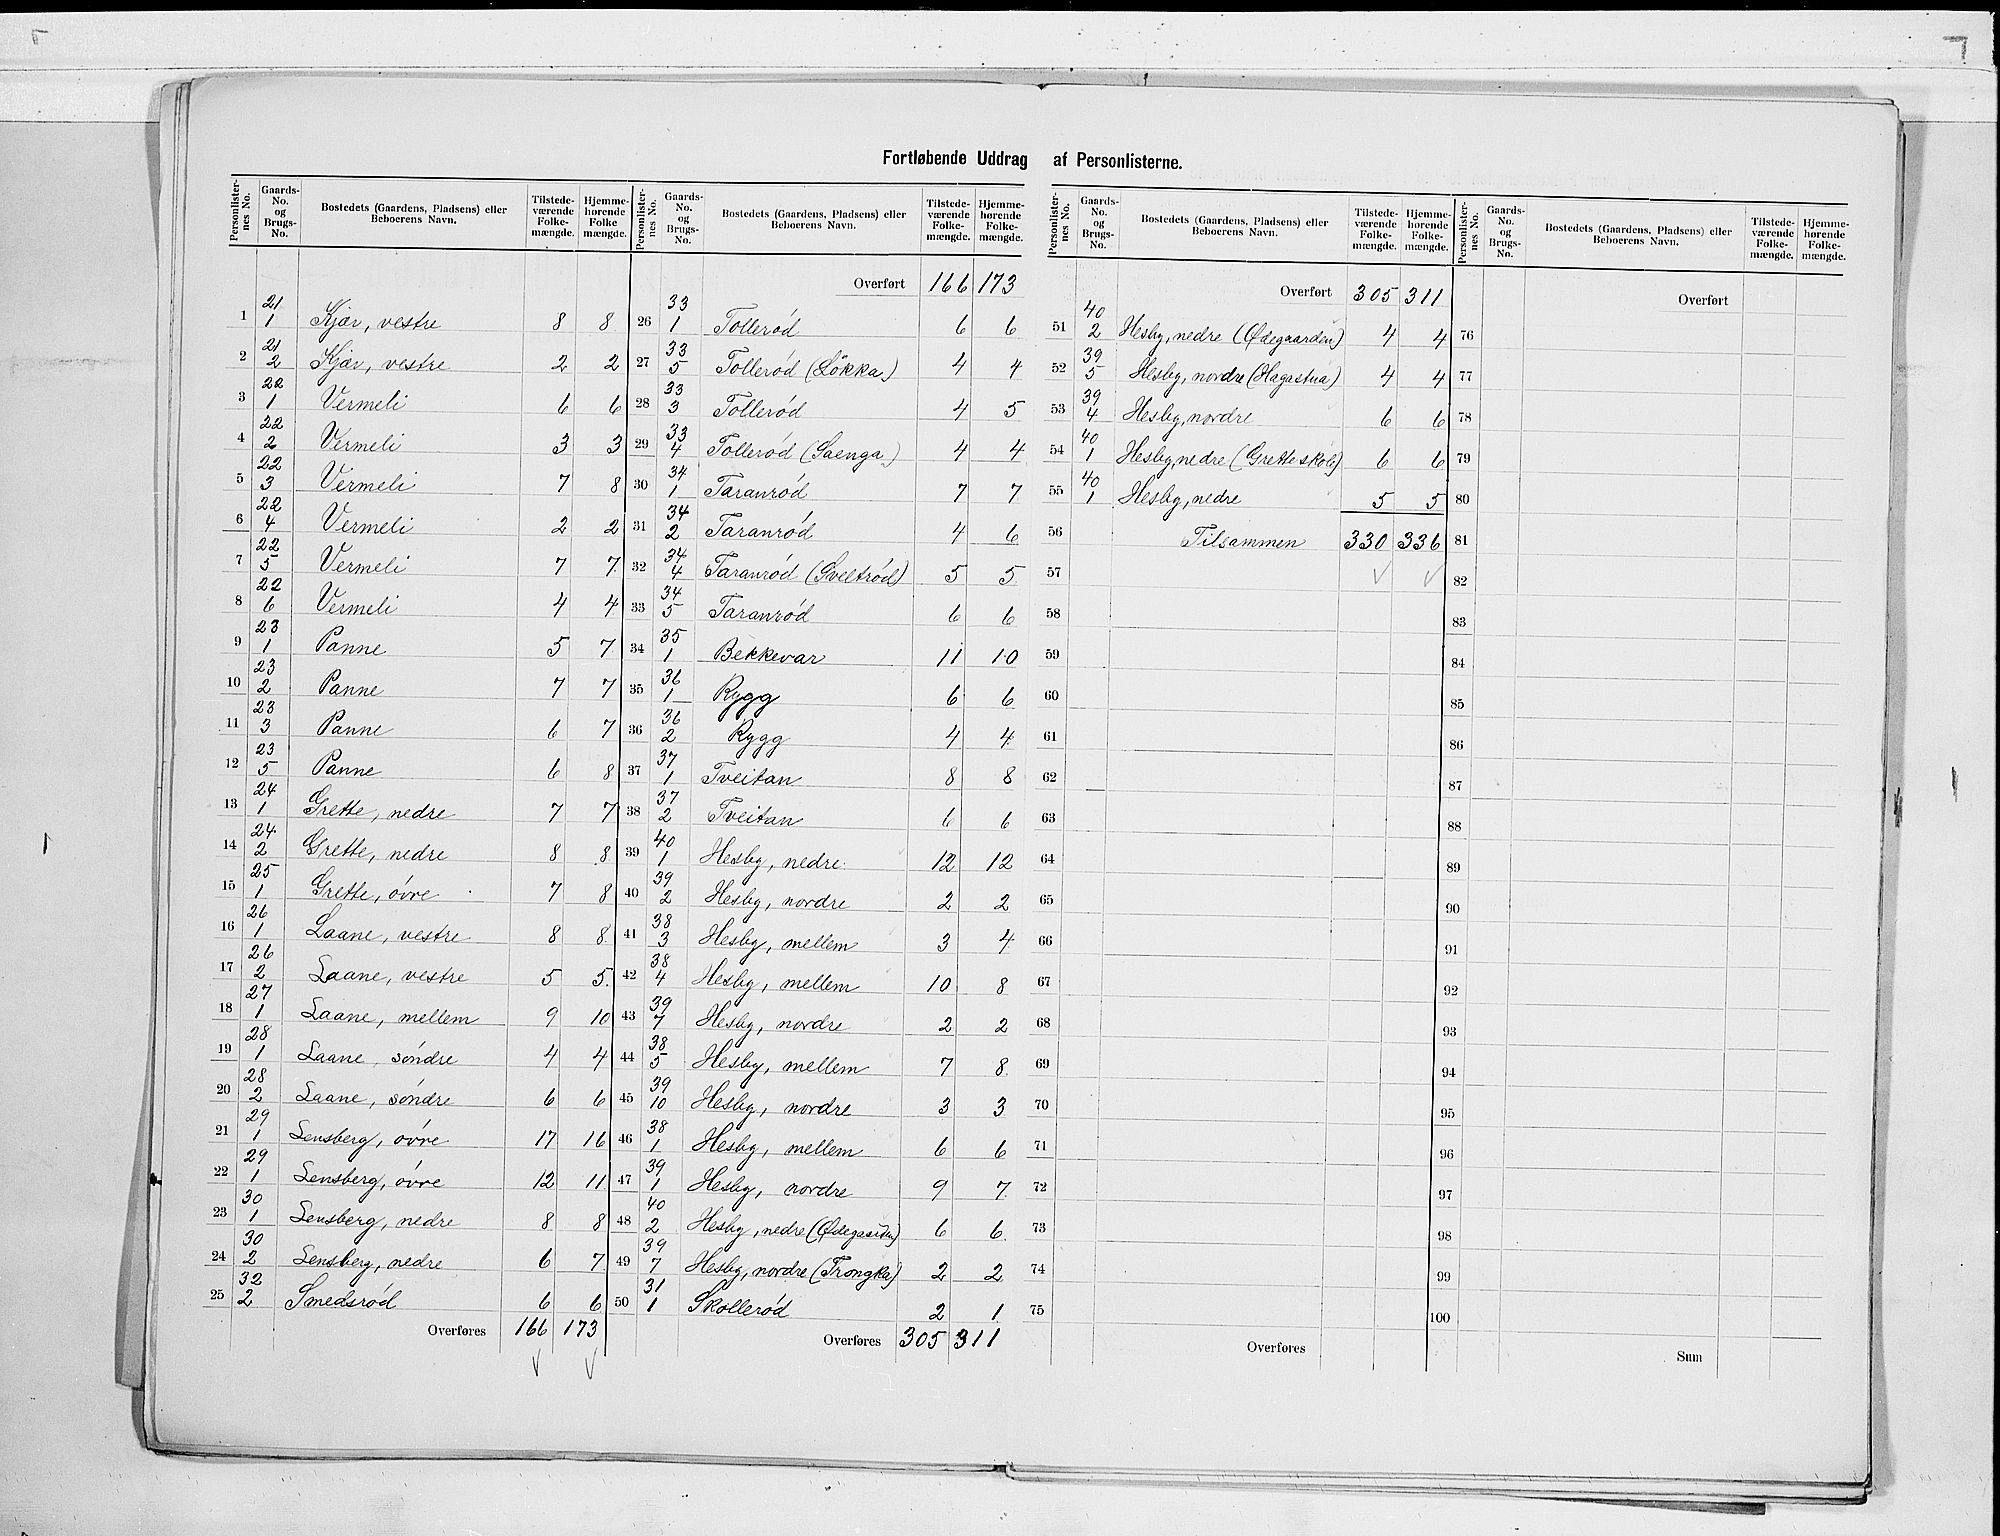 Fortløbende Uddrag af Personlisterne.
Personlister-nes No. Gaards-No. og Brugs-No. Bostedets (Gaardens, Pladsens) eller Beboerens Navn. Tilstede-værende Folke-mængde. Hjemme-hørende Folke mængde.
1 21/1 Kjær, vestre 8 8
2 21/2 Kjær, vestre 2 2
3 22/1 Vermeli 6 6
4 22/2 Vermeli 3 3
5 22/3 Vermeli 7 8
6 22/4 Vermeli 2 2
7 22/5 Vermeli 7 7
8 22/6 Vermeli 4 4
9 23/1 Panne 5 7
10 23/2 Panne 7 7
11 23/3 Panne 6 7
12 23/5 Panne 6 8
13 24/1 Grette, nedre 7 7
14 24/2 Grette, nedre 8 8
15 25/1 Grette, øvre 7 8
16 26/1 Laane, vestre 8 8
17 26/2 Laane, vestre 5 5
18 27/1 Laane, mellem 9 10
19 28/1 Laane, söndre 4 4
20 28/2 Laane, söndre 6 6
21 29/1 Lensberg, övre 17 16
22 29/1 Lensberg, övre 12 11
23 30/1 Lensberg, nedre 8 8
24 30/2 Lensberg, nedre 6 7
25 32/2 Smedsröd 6 6
Overføres 166 173
Personlister-nes No. Gaards-No. og Brugs-No. Bostedets (Gaardens, Pladsens) eller Beboerens Navn. Tilstede-værende Folke-mængde. Hjemme-hørende Folke-mængde.
Overført 166 173
26 33/1 Tolleröd 6 6
27 33/5 Tolleröd (Lökka) 4 4
28 33/3 Tolleröd 4 5
29 33/4 Tolleröd (Saenga) 4 4
30 34/1 Taranröd 7 7
31 34/2 Taranröd 4 6
32 34/4 Taranröd (Sveltröd) 5 5
33 34/5 Taranröd 6 6
34 35/1 Bekkevar 11 10
35 36/1 Rygg 6 6
36 36/2 Rygg 4 4
37 37/1 Tveitan 8 8
38 37/2 Tveitan 6 6
39 40/1 Hesby, nedre 12 12
40 39/2 Hesby, nordre 2 2
41 38/3 Hesby, mellem 3 4
42 38/4 Hesby, mellem 10 8
43 39/7 Hesby, nordre 2 2
44 38/5 Hesby, mellem 7 8
45 39/10 Hesby, nordre 3 3
46 38/1 Hesby, mellem 6 6
47 39/1 Hesby, nordre 9 7
48 40/2 Hesby, nedre (Ødegaarden) 6 6
49 39/7 Hesby, nordre (Trongka) 2 2
50 31/1 Skolleröd 2 1
Overføres 305 311
Personlister-nes No. Gaards-No. og Brugs-No. Bostedets (Gaardens, Pladsens) eller Beboerens Navn. Tilstede-værende Folke-mængde. Hjemme-hørende Folke-mængde.
Overført 305 311
51 40/2 Hesby, nedre (Ødegaarden) 4 4
52 39/5 Hesby, nordre (Hagastua) 4 4
53 39/4 Hesby, nordre 6 6
54 40/1 Hesby, nedre (Grette skole) 6 6
55 40/1 Hesby, nedre 5 5
56 Tilsammen 330 336
57
58
59
60
61
62
63
64
65
66
67
68
69
70
71
72
73
74
75
Overføres
Personlister-nes No. Gaards-No. og Brugs-No. Bostedets (Gaardens, Pladsens) eller Beboerens Navn. Tilstede-værende Folke-mængde. Hjemme-hørende Folke-mængde.
Overført
76
77
78
79
80
81
82
83
84
85
86
87
88
89
90
91
92
93
94
95
96
97
98
99
100
Sum